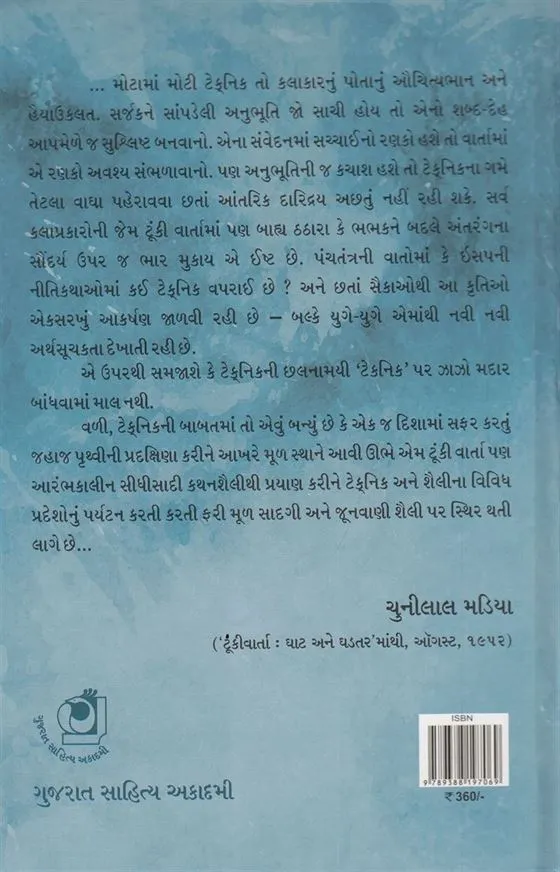 ... મોટામાં મોટી ટેક્‌નિક તો કલાકારનું પોતાનું ઔચિત્યભાન અને
હૈયાઉકલત. સર્જકને સાંપડેલી અનુભૂતિ જો સાચી હોય તો એનો શબ્દ-દેહ
આપમેળે જ સુશ્લિષ્ટ બનવાનો. એના સંવેદનમાં સચ્ચાઈનો રણકો હશે તો વાર્તામાં
એ રણકો અવશ્ય સંભળાવાનો. પણ અનુભૂતિની જ કચાશ હશે તો ટેક્‌નિકના ગમે
તેટલા વાઘા પહેરાવવા છતાં આંતરિક દારિદ્રય અછતું નહીં રહી શકે. સર્વ
કલાપ્રકારોની જેમ ટૂંકી વાર્તામાં પણ બાહ્ય ઠઠારા કે ભભકને બદલે અંતરંગના
સૌંદર્ય ઉપર જ ભાર મુકાય એ ઈષ્ટ છે. પંચતંત્રની વાતોમાં કે ઇસપની
નીતિકથાઓમાં કઈ ટેક્‌નિક વપરાઈ છે ? અને છતાં સૈકાઓથી આ કૃતિઓ
એકસરખું આકર્ષણ જાળવી રહી છે – બલ્કે યુગે-યુગે એમાંથી નવી નવી
અર્થસૂચકતા દેખાતી રહી છે.
એ ઉપરથી સમજાશે કે ટેક્‌નિકની છલનામયી ‘ટેકનિક’ પર ઝાઝો મદાર
બાંધવામાં માલ નથી.
વળી, ટેક્‌નિકની બાબતમાં તો એવું બન્યું છે કે એક જ દિશામાં સફર કરતું
જહાજ પૃથ્વીની પ્રદક્ષિણા કરીને આખરે મૂળ સ્થાને આવી ઊભે એમ ટૂંકી વાર્તા પણ
આરંભકાલીન સીધીસાદી કથનશૈલીથી પ્રયાણ કરીને ટેક્‌નિક અને શૈલીના વિવિધ
પ્રદેશોનું પર્યટન કરતી કરતી ફરી મૂળ સાદગી અને જૂનવાણી શૈલી પર સ્થિર થતી
લાગે છે...
ચુનીલાલ મડિયા
(‘ટૂંકીવાર્તા : ઘાટ અને ઘડતર’માંથી, ઑગસ્ટ, ૧૯૫૨)
ગુજરાત સાહિત્ય અકાદમી
ગુજરાત સાહિત્ય અકાદમી
ISBN
9 789388 197069
₹ 360/-